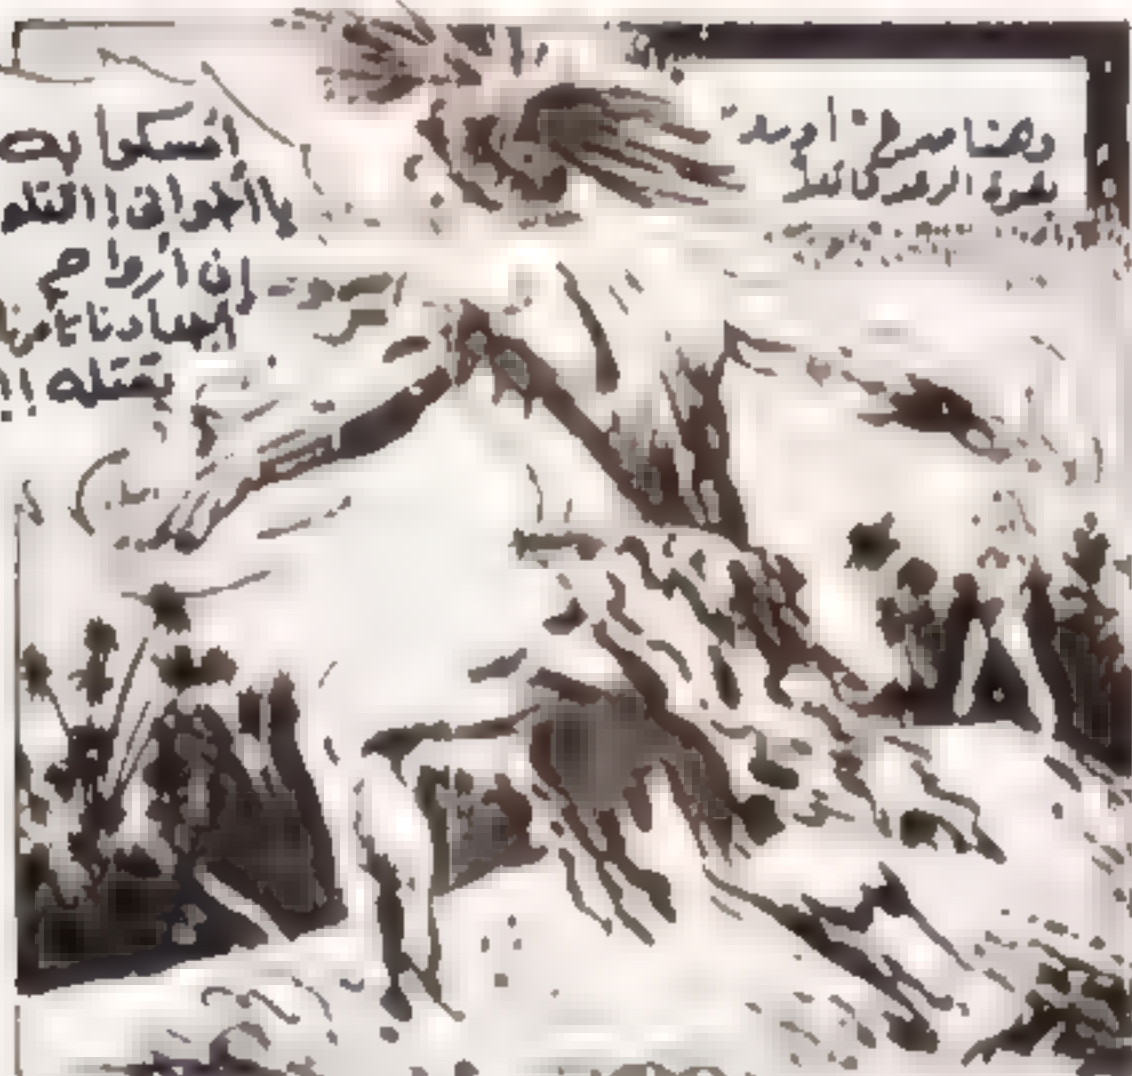 وهنا صرخ أوسد
بقوة الرعد كائلا
أمسكوا به
يا أخوان ! اقتلو
إن أرواح
أجدادنا تأمرنا
بقتله !!